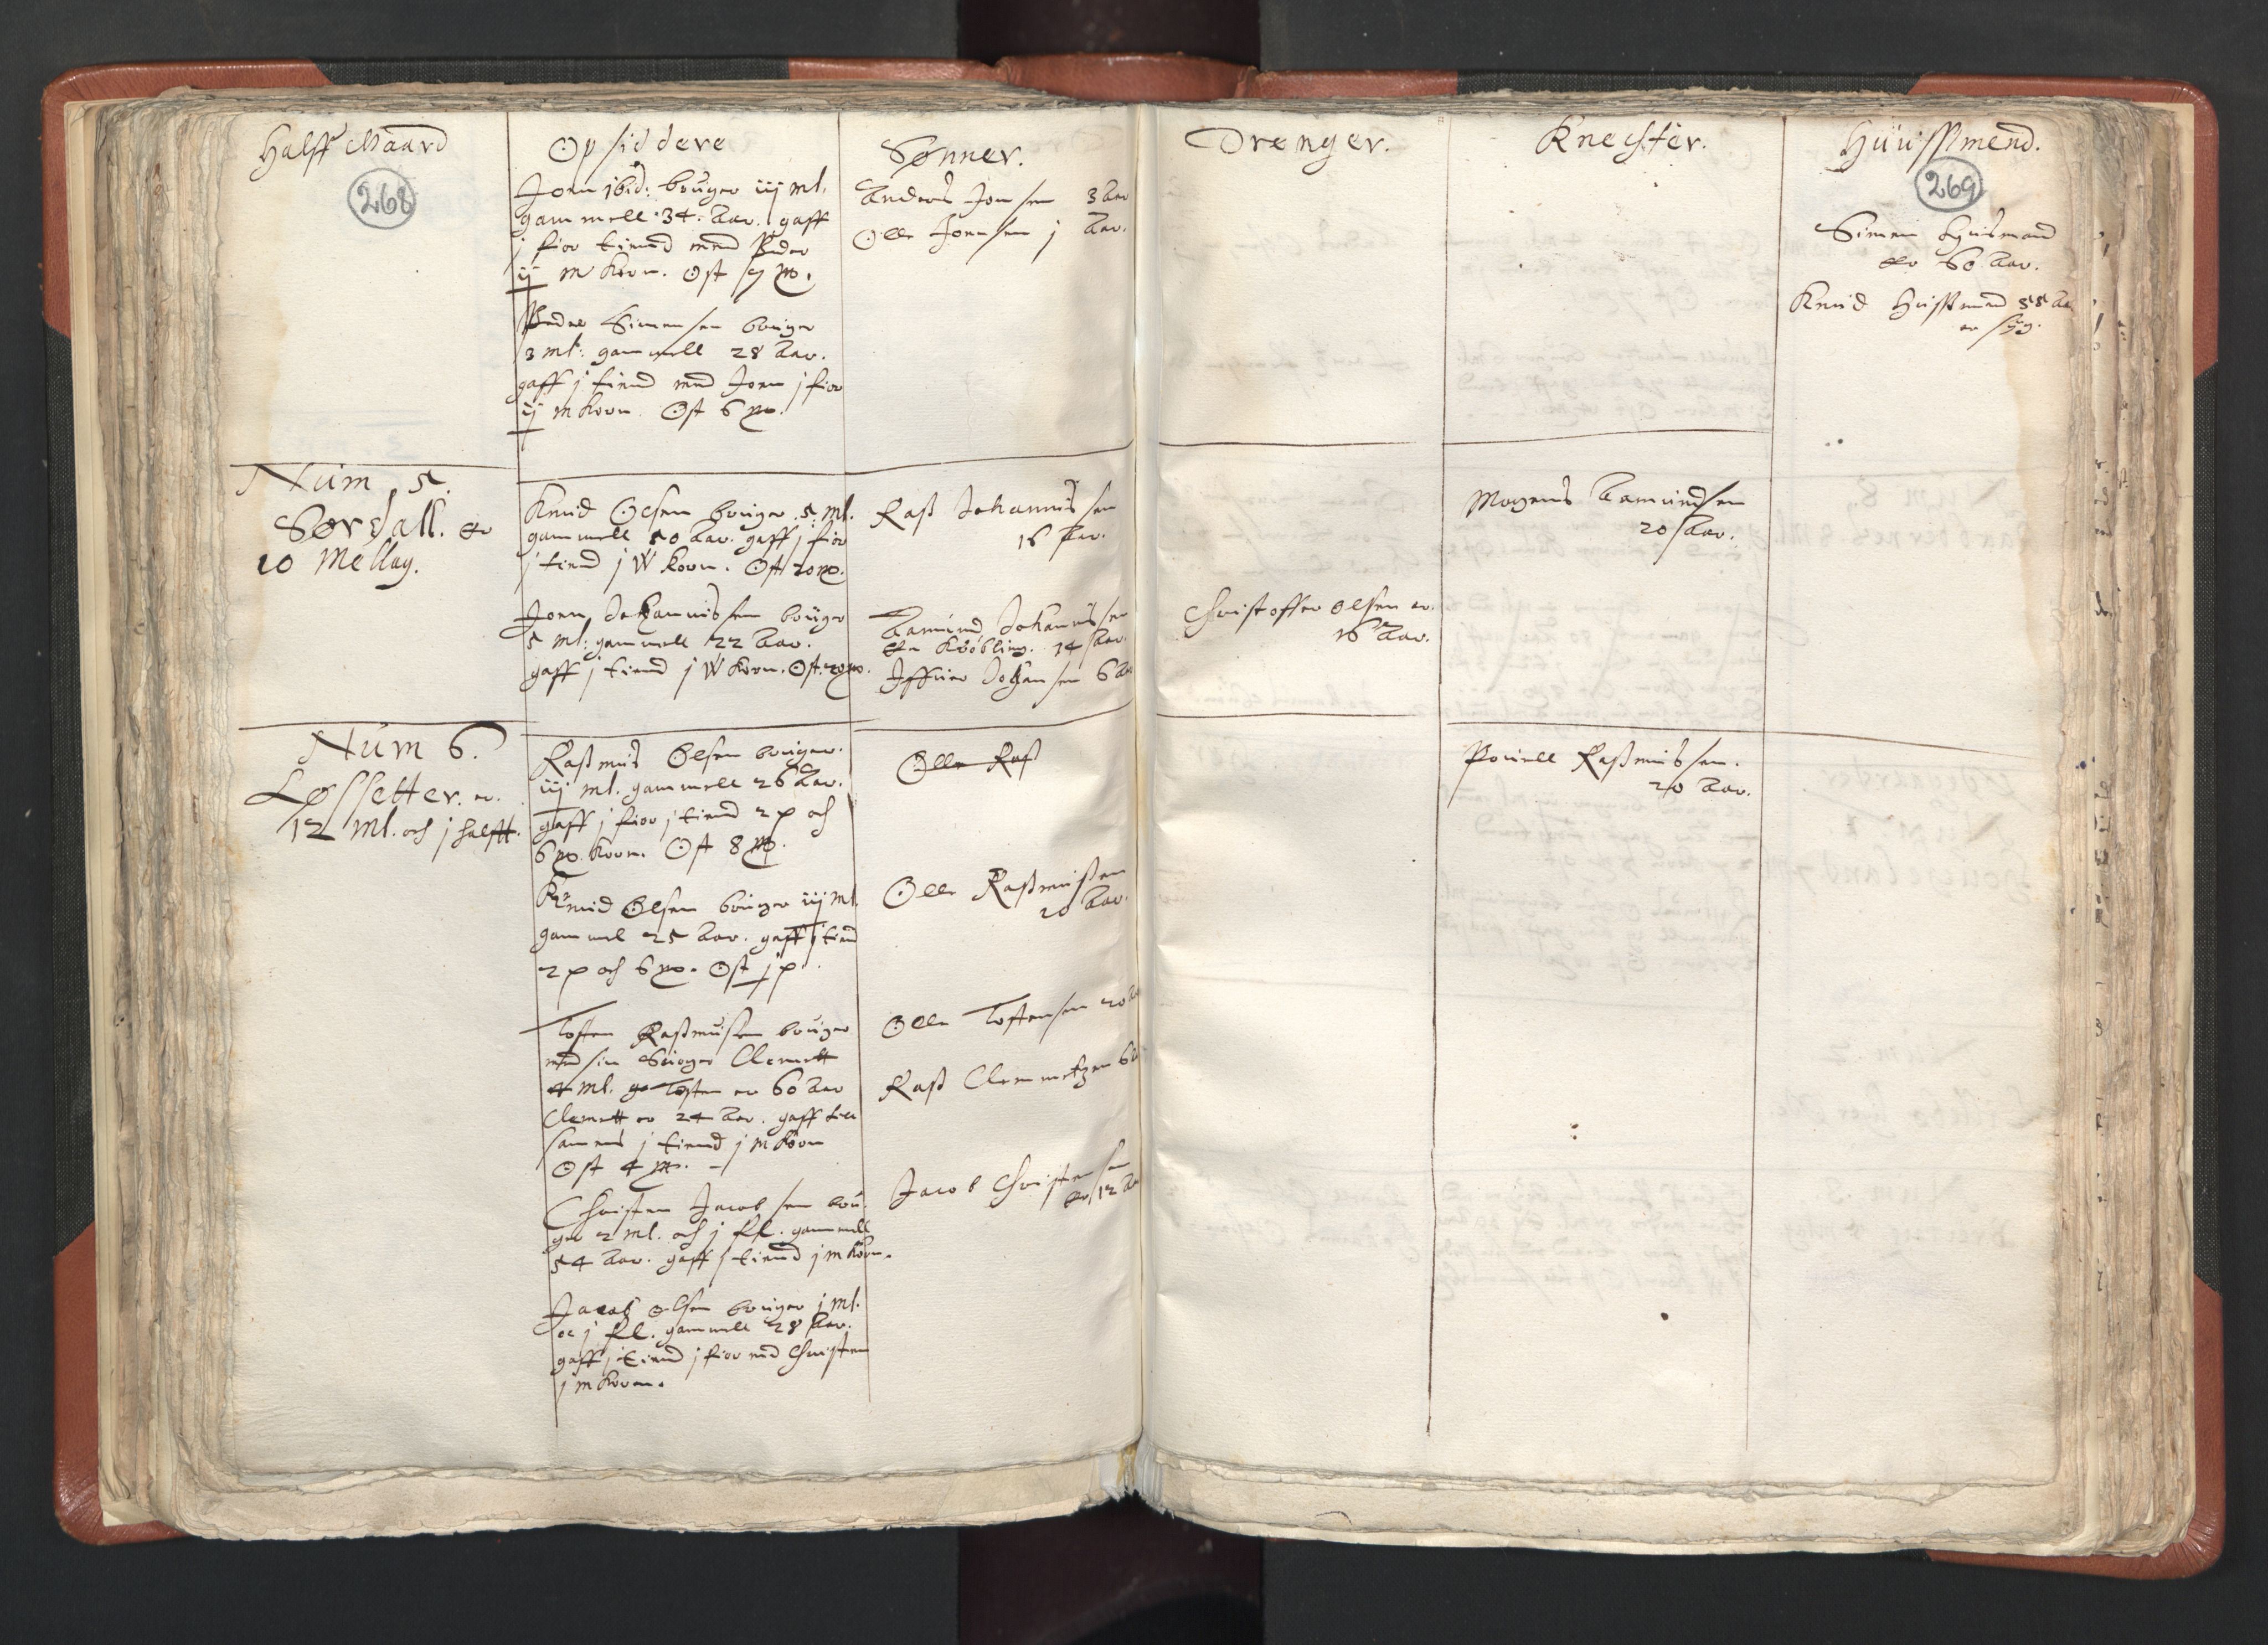 Halff Waard
268
Opsiddere
Joen ibid: bruger iij ml.
gammell 34. Aar. gaff
j fior tiend med Peder
ij m Korn. Ost
Peder Simensen bruger
3 ml: gammell 28 Aar.
gaff j tiend med Joen j fior
ij m Korn. Ost 6
Sønner.
Anders Joensen 3 Aar
Olle Joensen j Aar.
Num 5.
Sørdall. er
10 Mellag.
Knud Olsen bruger 5 ml.
gammell 50 Aar. gaff j fior
j tiend j W Korn. Ost 20
Joen Johannissen bruger
5 ml: gammell 22 Aar.
gaff j tiend j W Korn. Ost.
Rass Johannissen
16 Aar.
Aamund Johannissen
er Krøbling. 14 Aar.
Iffuer Johansen 6 Aar
Num 6.
Løssetter. er.
12 ml. och j halfft.
Rassmus Olsen bruger.
iij ml. gammell 26 Aar.
gaff j fior j tiend 2 p och
6 Korn. Ost 8
Knud Olsen bruger iij ml
gammel 25 Aar. gaff j tiend
2 p och 6 Ost j p.
Tosten Rassmussen bruger
med sin Suoger Clemett
4 ml. Tosten er 60 Aar
Clemett er 24 Aar. gaff till
samens j tiend j m Korn
Ost 4
Christen Jacobsen bru-
ger 2 ml. och j fl. gammell
54 Aar. gaff j tiend j m Korn.
Jacob Olsen bruger j ml.
oc j fl. gammell 28 Aar.
gaff j tiend j fior med Christen
j m Korn.
Olle Rass
Olle Rassmussen
20 Aar.
Olle Tostensen 20
Rass Clemmetzen 6
Jacob Christensen
er 12 Aar
Drenger.
Christoffer Olsen er.
16 Aar.
Knechter.
Mogens Aamundsen
20 Aar.
Pouell Rassmussen.
20 Aar.
Huussmend.
269
Simen Husmand
er 60 Aar.
Knud Hussmand 58 Aar
er syg.